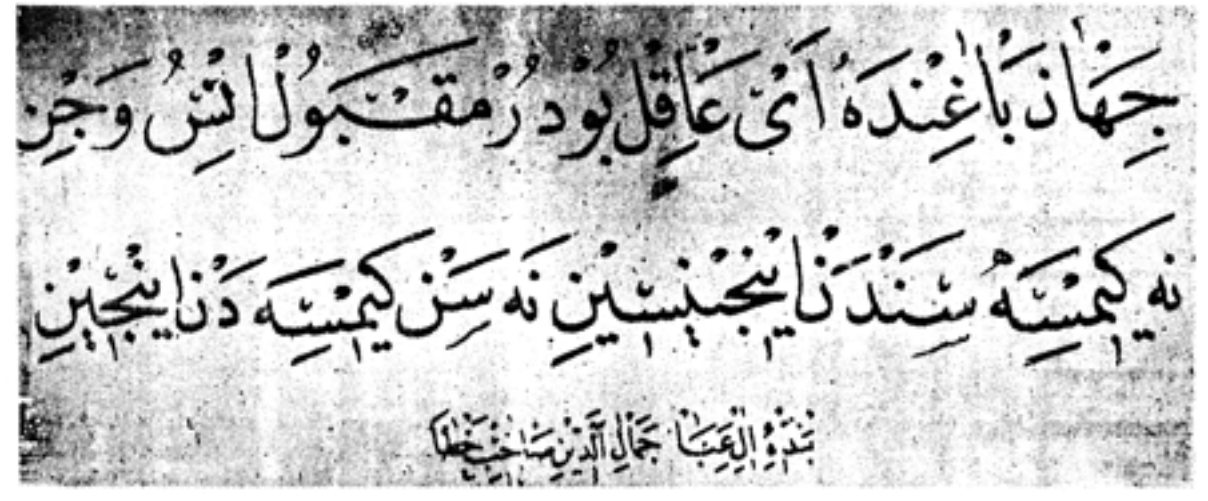 جِهَان بَاغِنْدَهُ اَىْ عَاقِلْ بُودُرْ مَقْبُولُ اِنْسُ وَجِنْ
نَه كِيمْسَه سَنْدَنْ اِينْجِينْسِينْ نَه سَنْ كِيمْسَه دَنْ اِينْجِينْ
بَنْدَهِٔ اٰلِ عَبَا جَمَالُ الدِّينْ صَاحِبْ خَطَا